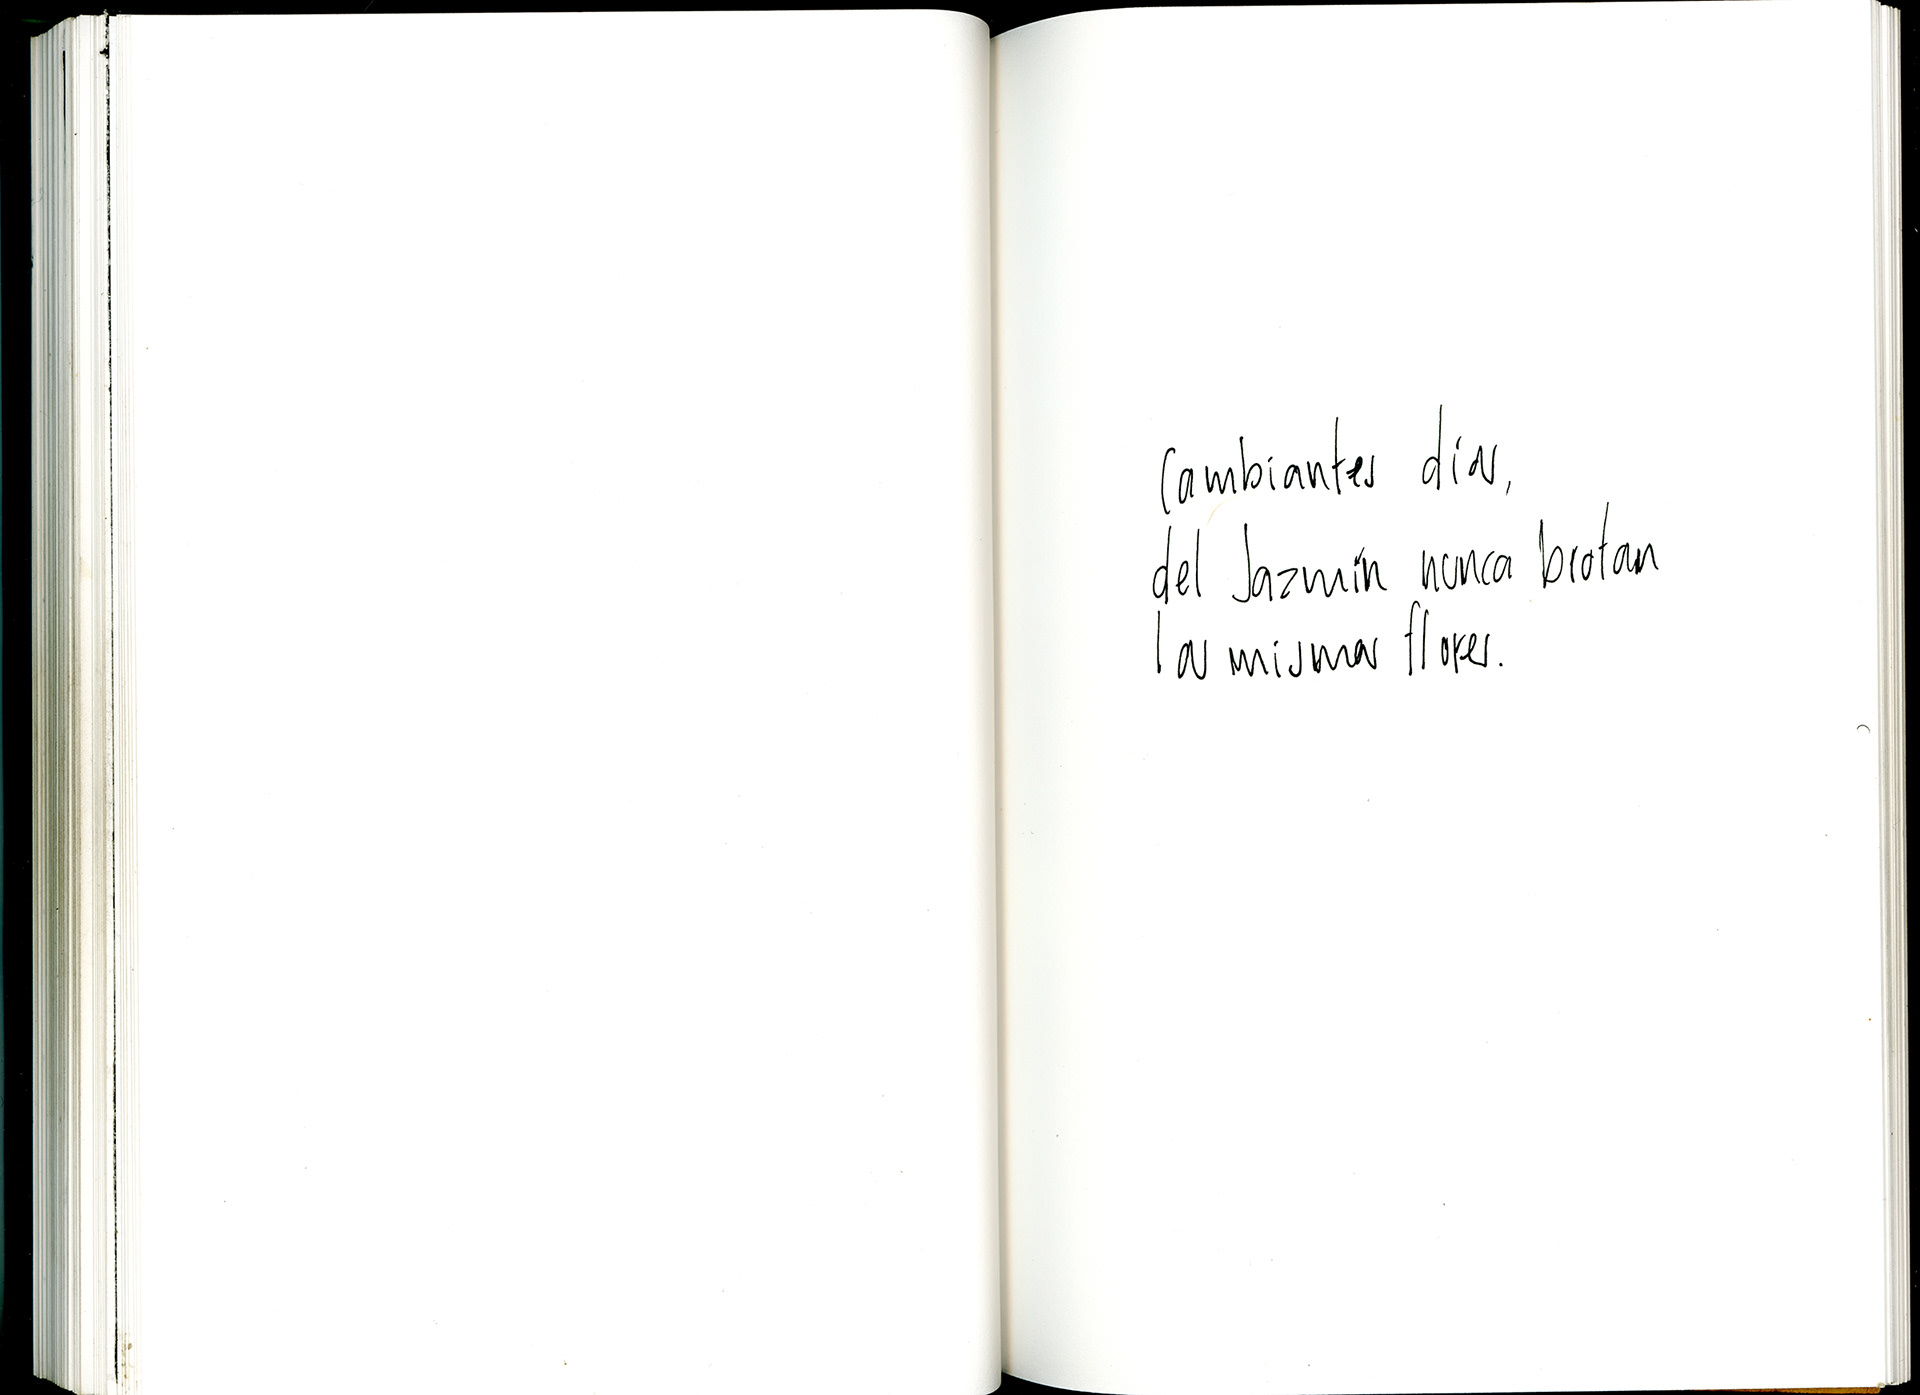 Cambiantes días,
del Jazmín nunca brotan
las mismas flores.